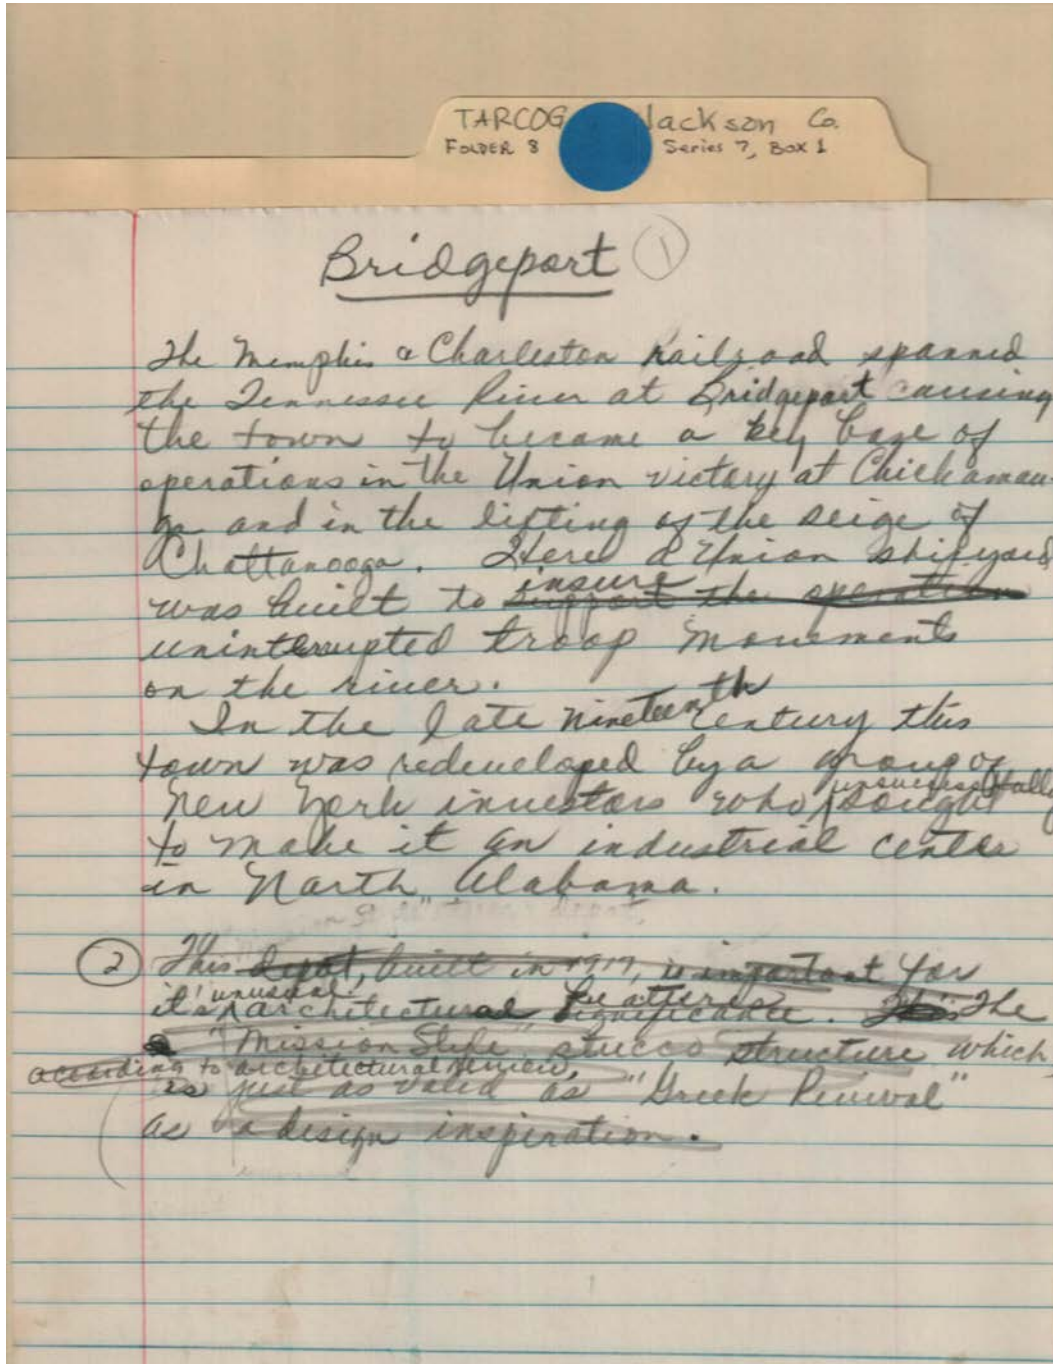 TARCOG Jackson Co.
FOLDER 8 Series 7, Box 1
Bridgeport 1
The Memphis & Charleston Railroad spanned
the Tennessee River at Bridgeport causing
the town to became a key base of
operations in the Union victory at Chickamau-
ga and in the lifting of the seige of
Chattanooga. Here a Union shipyard
insure
was built to support the operation
uninterrupted troop movements
on the river.
In the late nineteenth century this
town was redeveloped by a group of
unsuccessfully
New York investors who sought
to make it an industrial center
in North Alabama.
2 This depot, built in 1917, is important for
unusual features
it's architectural significance. This The
a "Mission Style" stucco structure which
according to architectural review,
is just as valid as "Greek Revival"
as a design inspiration.